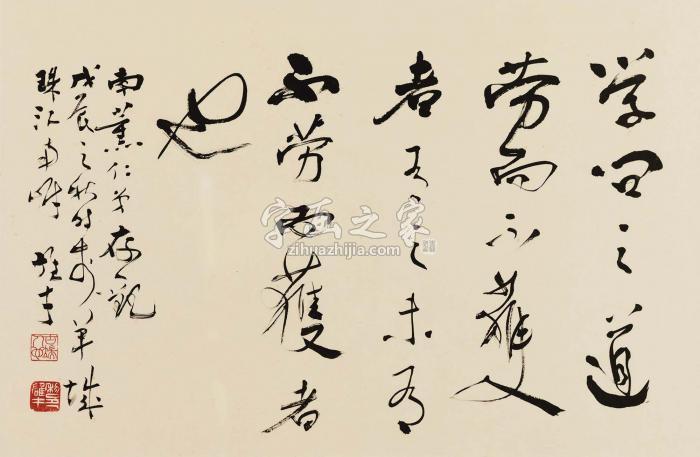 学问之道
劳而不獲
者有之未有
不劳而獲者
也
南薰仁弟存观
戊辰之秋时 羊城
珠江南岸 雄才
字画之家
zihuazhijia.com